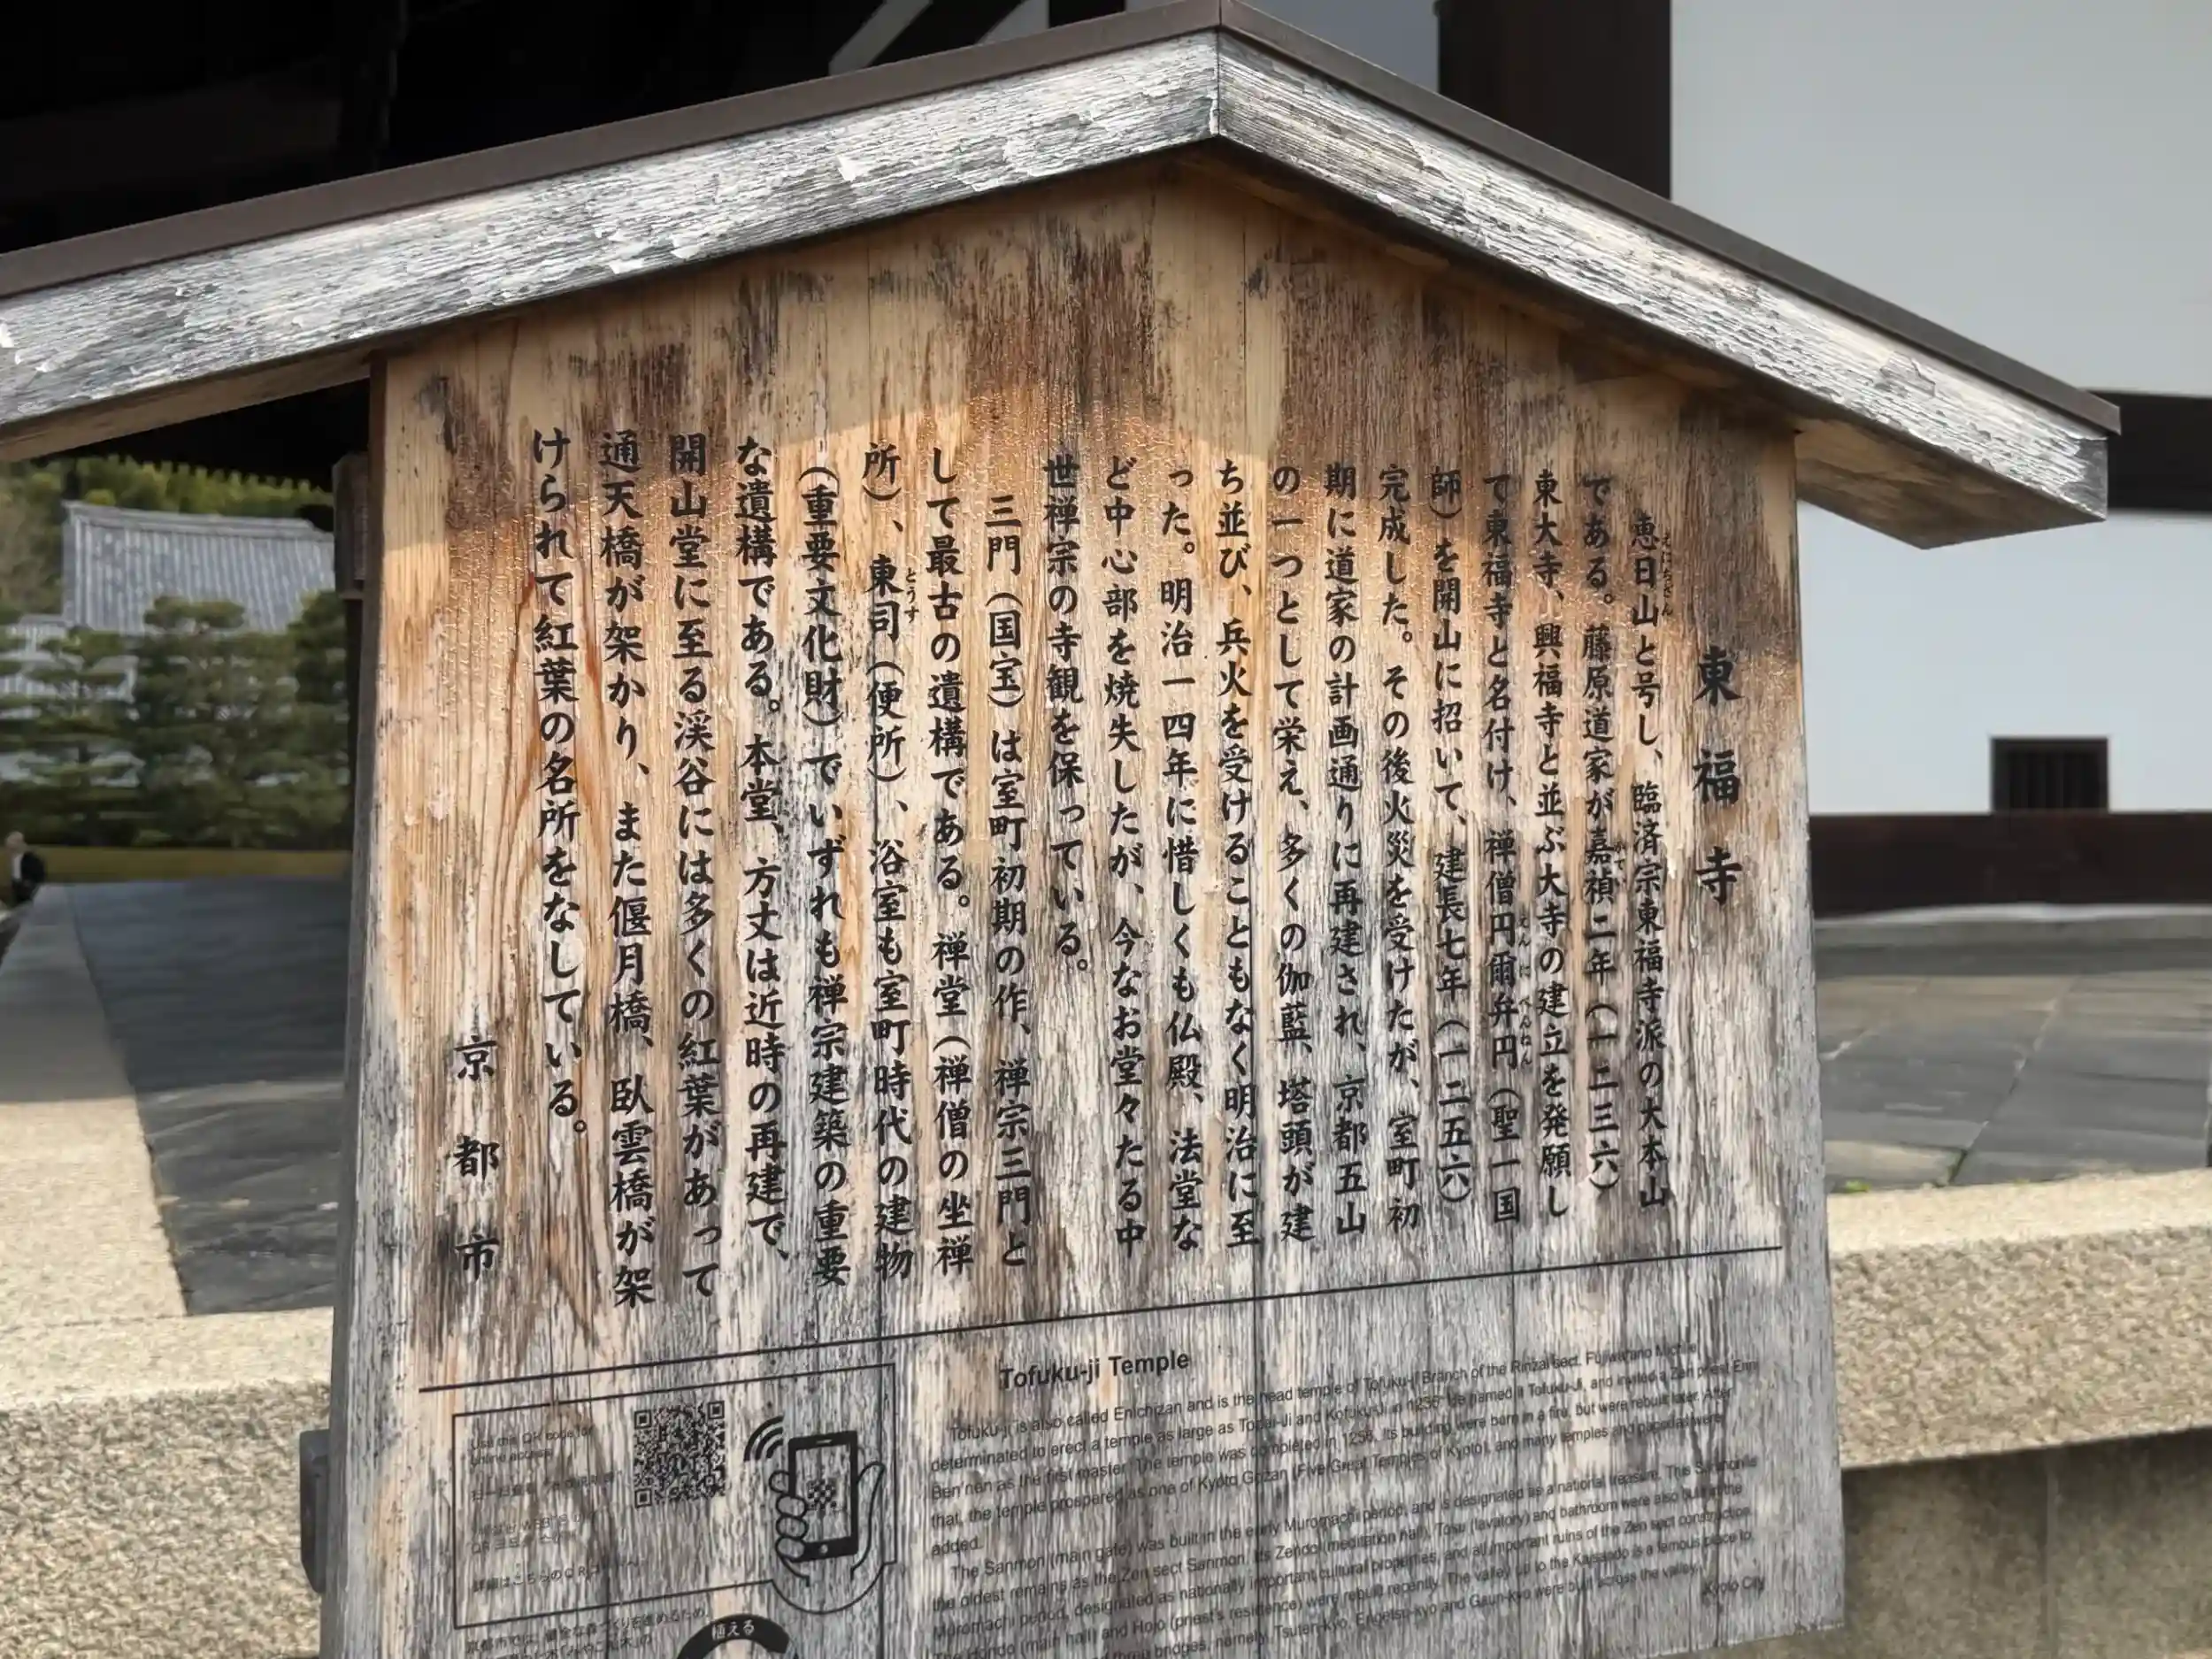 東福寺
恵日山と号し、臨済宗東福寺派の大本山
である。藤原道家が嘉禎二年（一二三六）
東大寺、興福寺と並ぶ大寺の建立を発願し
て東福寺と名付け、禅僧円爾弁円（聖一国
師）を開山に招いて、建長七年（一二五六）
完成した。その後火災を受けたが、室町初
期に道家の計画通りに再建され、京都五山
の一つとして栄え、多くの伽藍、塔頭が建
ち並び、兵火を受けることもなく明治に至
った。明治一四年に惜しくも仏殿、法堂な
ど中心部を焼失したが、今なお堂々たる中
世禅宗の寺観を保っている。
三門（国宝）は室町初期の作、禅宗三門と
して最古の遺構である。禅堂（禅僧の坐禅
所）、東司（便所）、浴室も室町時代の建物
（重要文化財）でいずれも禅宗建築の重要
な遺構である。本堂、方丈は近時の再建で、
開山堂に至る渓谷には多くの紅葉があって
通天橋が架かり、また偃月橋、臥雲橋が架
けられて紅葉の名所をなしている。
京都市
Tofuku-ji Temple
Tofuku-ji is also called Enichizan and is the head temple of Tofuku-ji Branch of the Rinzai sect. Fujiwara no Michiie
determined to erect a temple as large as Todai-Ji and Kofuku-Ji in 1236. He named it Tofuku-Ji, and invited a Zen priest Enni
Ben'nen as the first master. The temple was completed in 1256. Its building were born in a fire, but were rebuilt later. After
that, the temple prospered as one of Kyoto Gozan (Five Great Temples of Kyoto), and many temples and pagodas were
added.
The Sanmon (main gate) was built in the early Muromachi period, and is designated as a national treasure. The Sanmon is
the oldest remains as the Zen sect Sanmon. Its Zendo (meditation hall), Tosu (lavatory) and bathroom were also built in the
Muromachi period, designated as nationally important cultural properties, and all important ruins of the Zen sect construction.
The Hondo (main hall) and Hojo (priest's residence) were rebuilt recently. The valley up to the Kaisando is a famous place to
three bridges, namely, Tsuten-kyo, Engetsu-kyo and Gaun-kyo were built across the valley.
Kyoto City
Use this QR code for
online access
詳細はこちらのQRコードへ
京都市では、健全な森づくりを進めるため、
植える